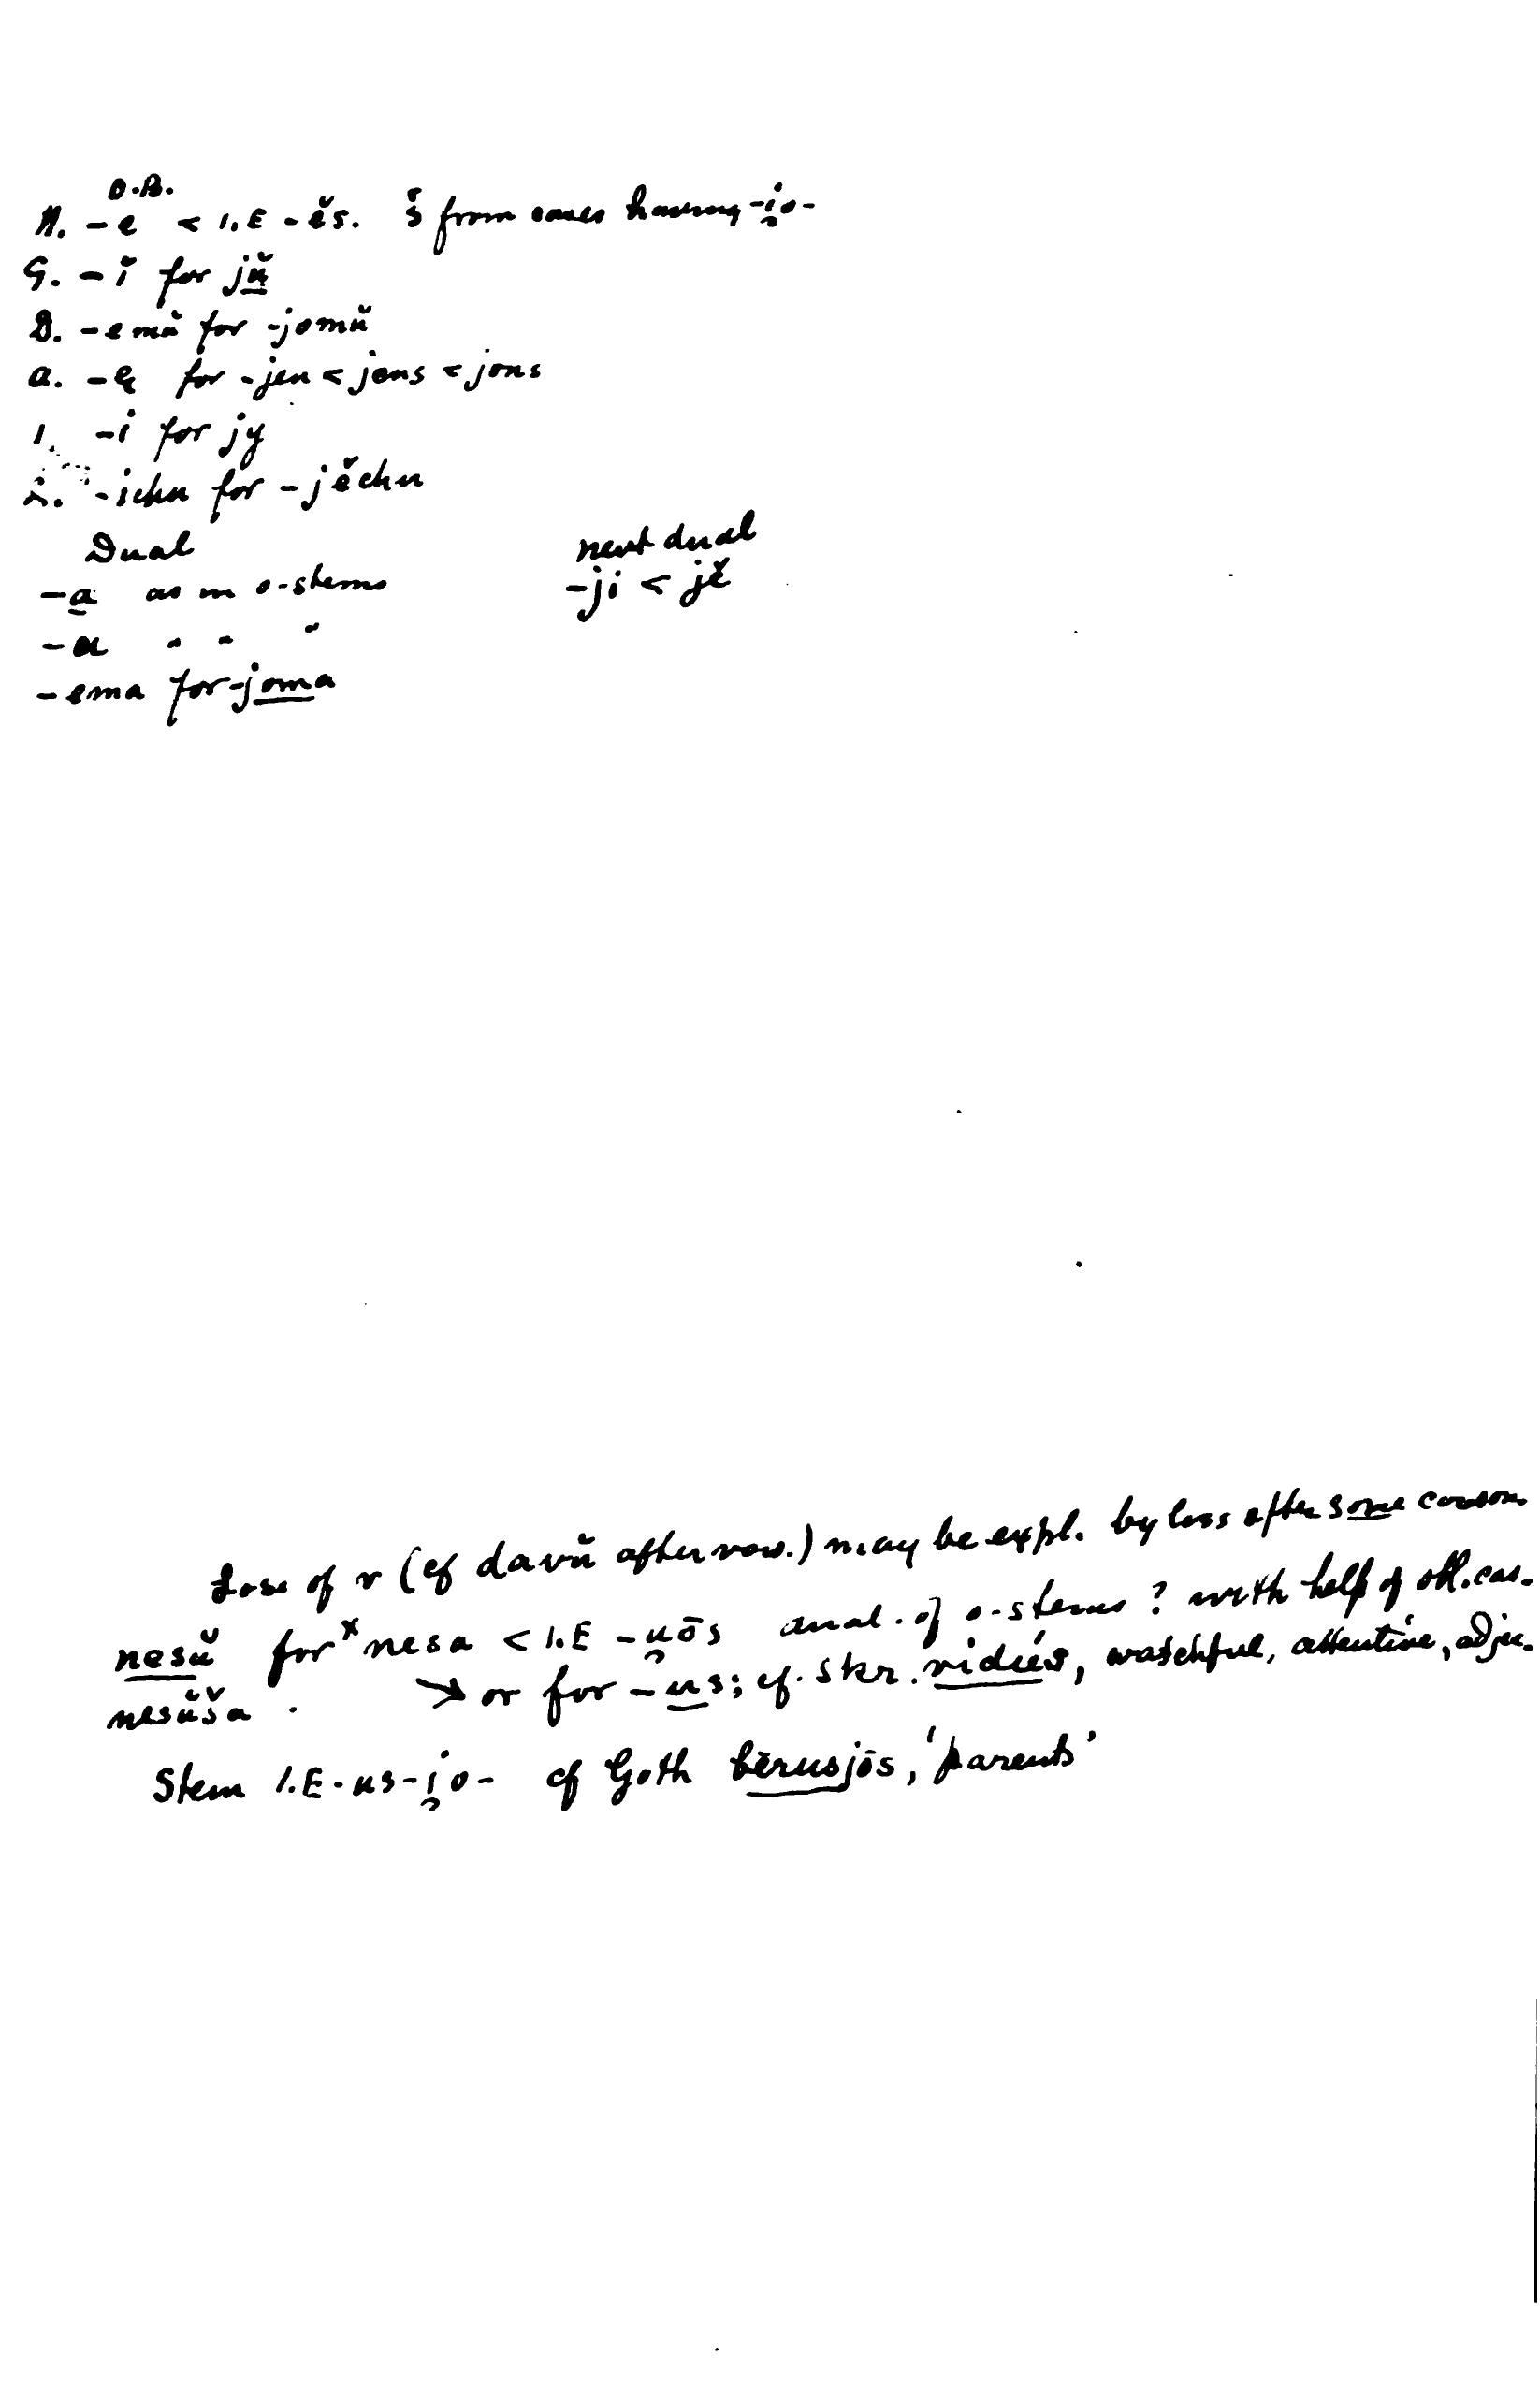 O.B.
N. -e < I.E -ĕs. š from cases having -i̯o-
G. -ĭ for jŭ
D. -emŭ for -jomŭ
A. -ę for -jen < jens < jons
I. -i for jy
L. -ichu for -jěchu
Dual neut dual
-a as in o-stems -ji < jě
-u " " "
-ema for -joma
Loss of v (cf davŭ after vow.) may be expl. by loss after some conson.
nesŭ for *nesa < I.E -u̯ōs anal. of o-stems? with help of obl. cas.
nesŭša. → or for -us; cf. Skr. vidús, watchful, attentive, adjec.
Stem I.E. us-i̯o- cf Goth bērusjōs, 'parents'